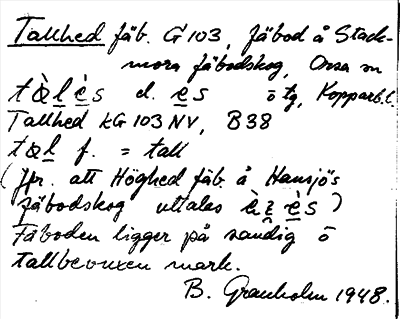 Tallhed fäb. G 103, fäbod å Stack-
mora fäbodskog, Orsa sn
tàlès el. es ö tg, Kopparb.l.
Tallhed kG 103 NV, B38
tal f. = tall
(Jfr. att Höghed fäb. å Hansjös
fäbodskog uttalas ès)
Fäboden ligger på sandig o
tallbevuxen mark.
B. Granholm 1948.